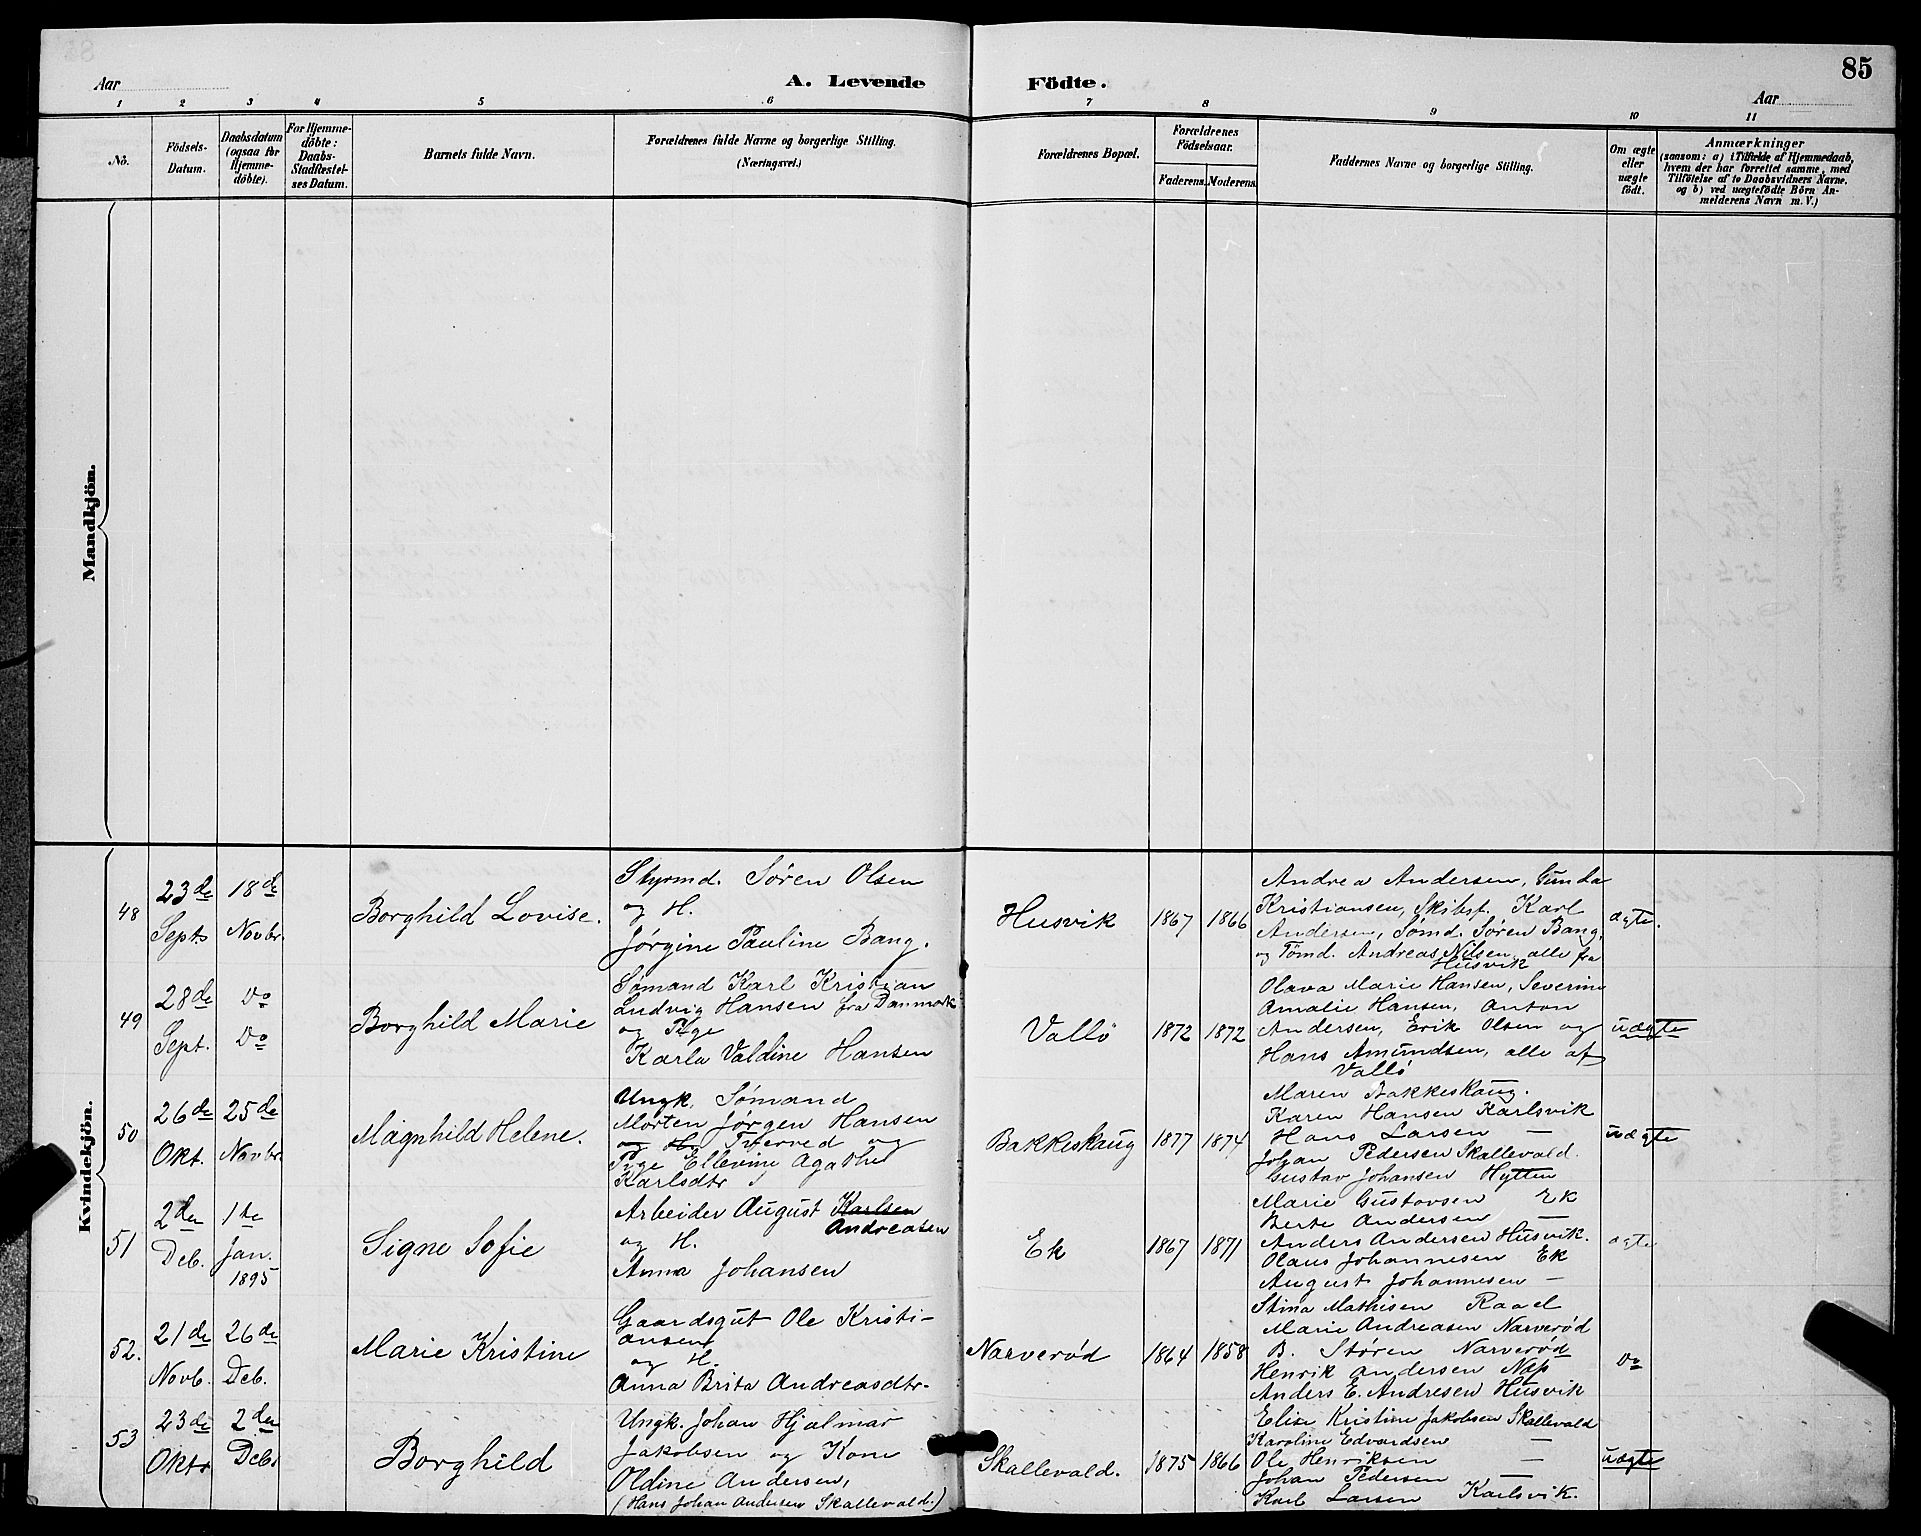 85
Aar
A. Levende
Födte.
Aar
1 2 3 4 5 6 7 8 9 10 11
No.
Födsels-
Datum.
Daabsdatum
(ogsaa for
Hjemme-
döbte).
For Hjemme-
döbte:
Daabs-
Stadfæstel-
ses Datum.
Barnets fulde Navn.
Forældrenes fulde Navne og borgerlige Stilling.
(Næringsvei.)
Forældrenes Bopæl.
Forældrenes
Födselsaar.
Faderens.
Moderens.
Faddernes Navne og borgerlige Stilling.
Om ægte
eller
uægte
födt.
Anmærkninger
(saasom: a) i Tilfælde af Hjemmedaab,
hvem der har forrettet samme, med
Tilföielse af to Daabsvidners Navne,
og b) ved uægtefödte Börn An-
melderens Navn m. V.)
Mandkjön.
Kvindekjön.
48
23de
Septr
18de
Novbr.
Borghild Lovise.
Styrmd. Søren Olsen
og H.
Jørgine Pauline Bang.
Husvik
1867
1866
Andrea Andersen, Gunda
Kristiansen, Skibsf. Karl
Andersen, Sømd. Søren Bang,
og Tømd. Andreas Nilsen, alle fra
Husvik
ægte.
49
28de
Sept.
Do
Do
Borghild Marie
Sømand Karl Kristian
Ludvig Hansen fra Danmark
og Pige
Karla Valdine Hansen
Vallø
1872
1872
Olava Marie Hansen, Severine
Amalie Hansen, Anton
Andersen, Erik Olsen og
Hans Amundsen, alle af
Vallø
uægte
50
26de
Okt.
25de
Novbr.
Magnhild Helene.
Ungk. Sømand
Morten Jørgen Hansen
og H. Tverved og
Pige Ellevine Agathe
Karlsdtr
Bakkeskaug
1877
1874
Maren Bakkeskaug.
Karen Hansen Karlsvik
Hans Larsen —
Johan Pedersen Skallevald.
Gustav Johansen Hytten
uægte
51
2den
Deb.
1ste
Jan.
1895
Signe Sofie
Arbeider August Karlsen
Andreasen
og H.
Anna Johansen
Ek
1867
1871
Marie Gustavsen Ek
Berte Andersen —
Anders Andersen Husvik.
Olaus Johannesen Ek
August Johannesen —
ægte
52.
21de
Novb.
26de
Deb.
Marie Kristine
Gaardsgut Ole Kristi-
ansen
og H.
Anna Brita Andreasdtr.
Narverød
1864
1858
Stina Mathisen Raael
Marie Andreasen Narverød
B. Støren Narverød
Henrik Andersen Nap
Anders E. Andresen Husvik
Do
53
23de
Oktr
2den
Deb.
Borghild
Ungk. Johan Hjalmar
Jakobsen og Kone
Oldine Andersen,
(Hans Johan Andersen Skallevald.)
Skallevald.
1875
1866
Elise Kristine Jakobsen Skallevald
Karoline Edvardsen —
Ole Henriksen —
Johan Pedersen —
Karl Larsen Karlsvik.
uægte